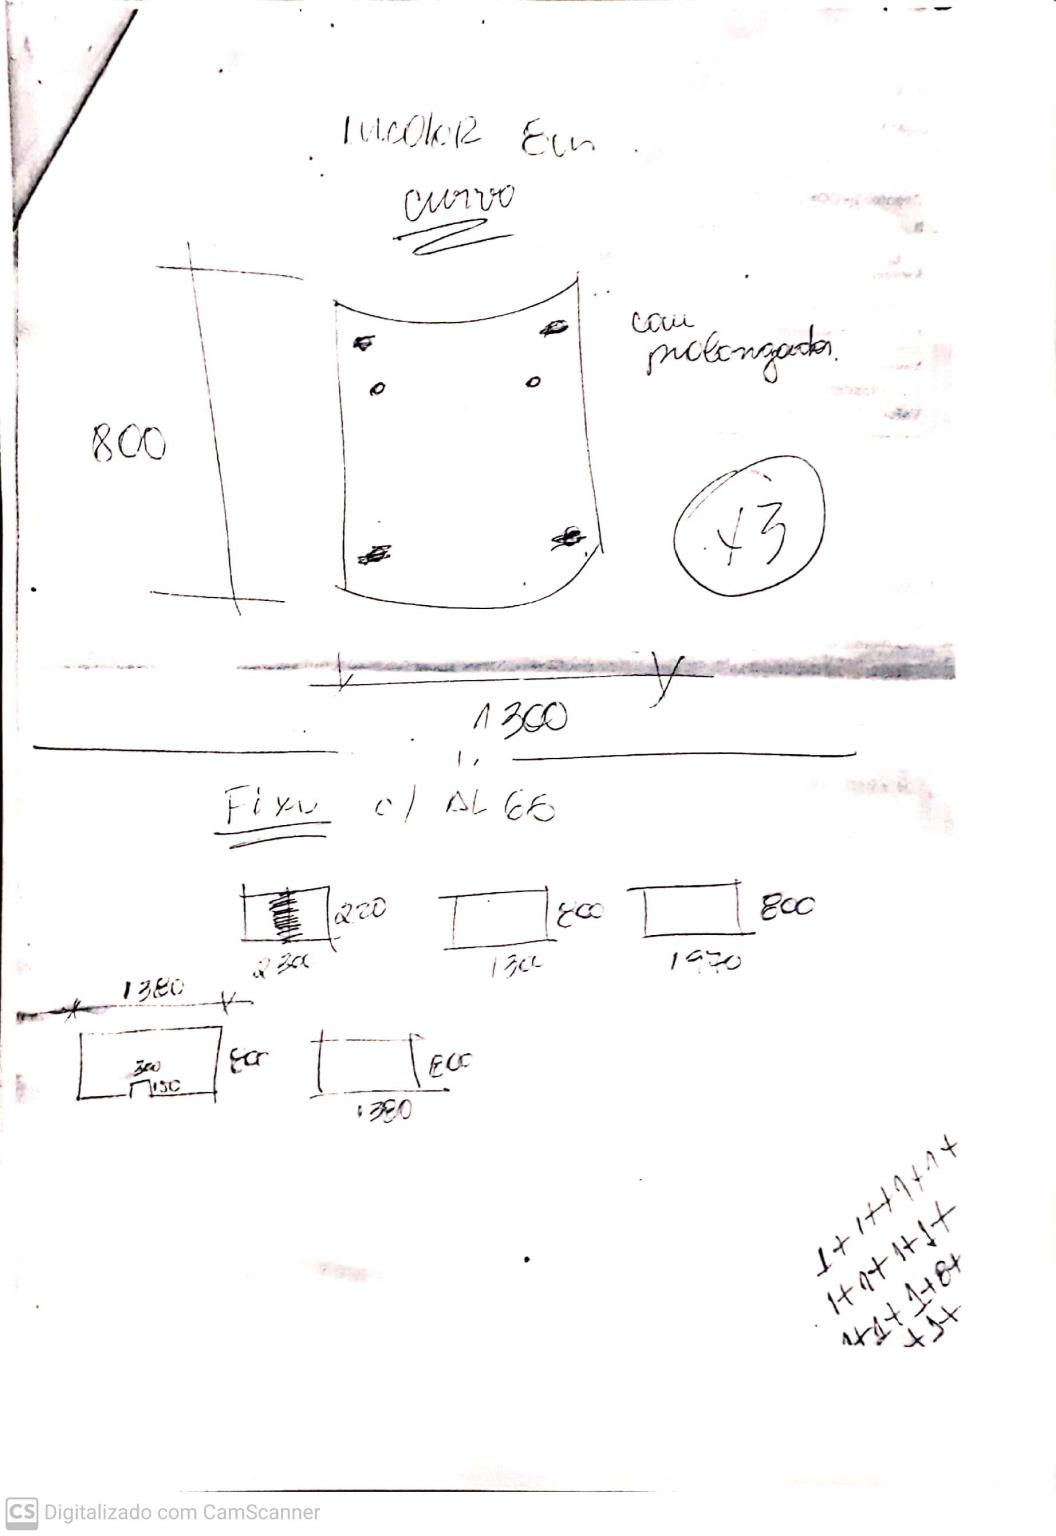 INCOLOR
curvo
com
prolongador.
800
x3
1300
Fixo c/ AL 66
220
800
800
230
130
1970
1380
800
300
150
800
1380
1+1++1+1+
1+1+1+1+
1+1+1+8+
+1+
CS Digitalizado com CamScanner